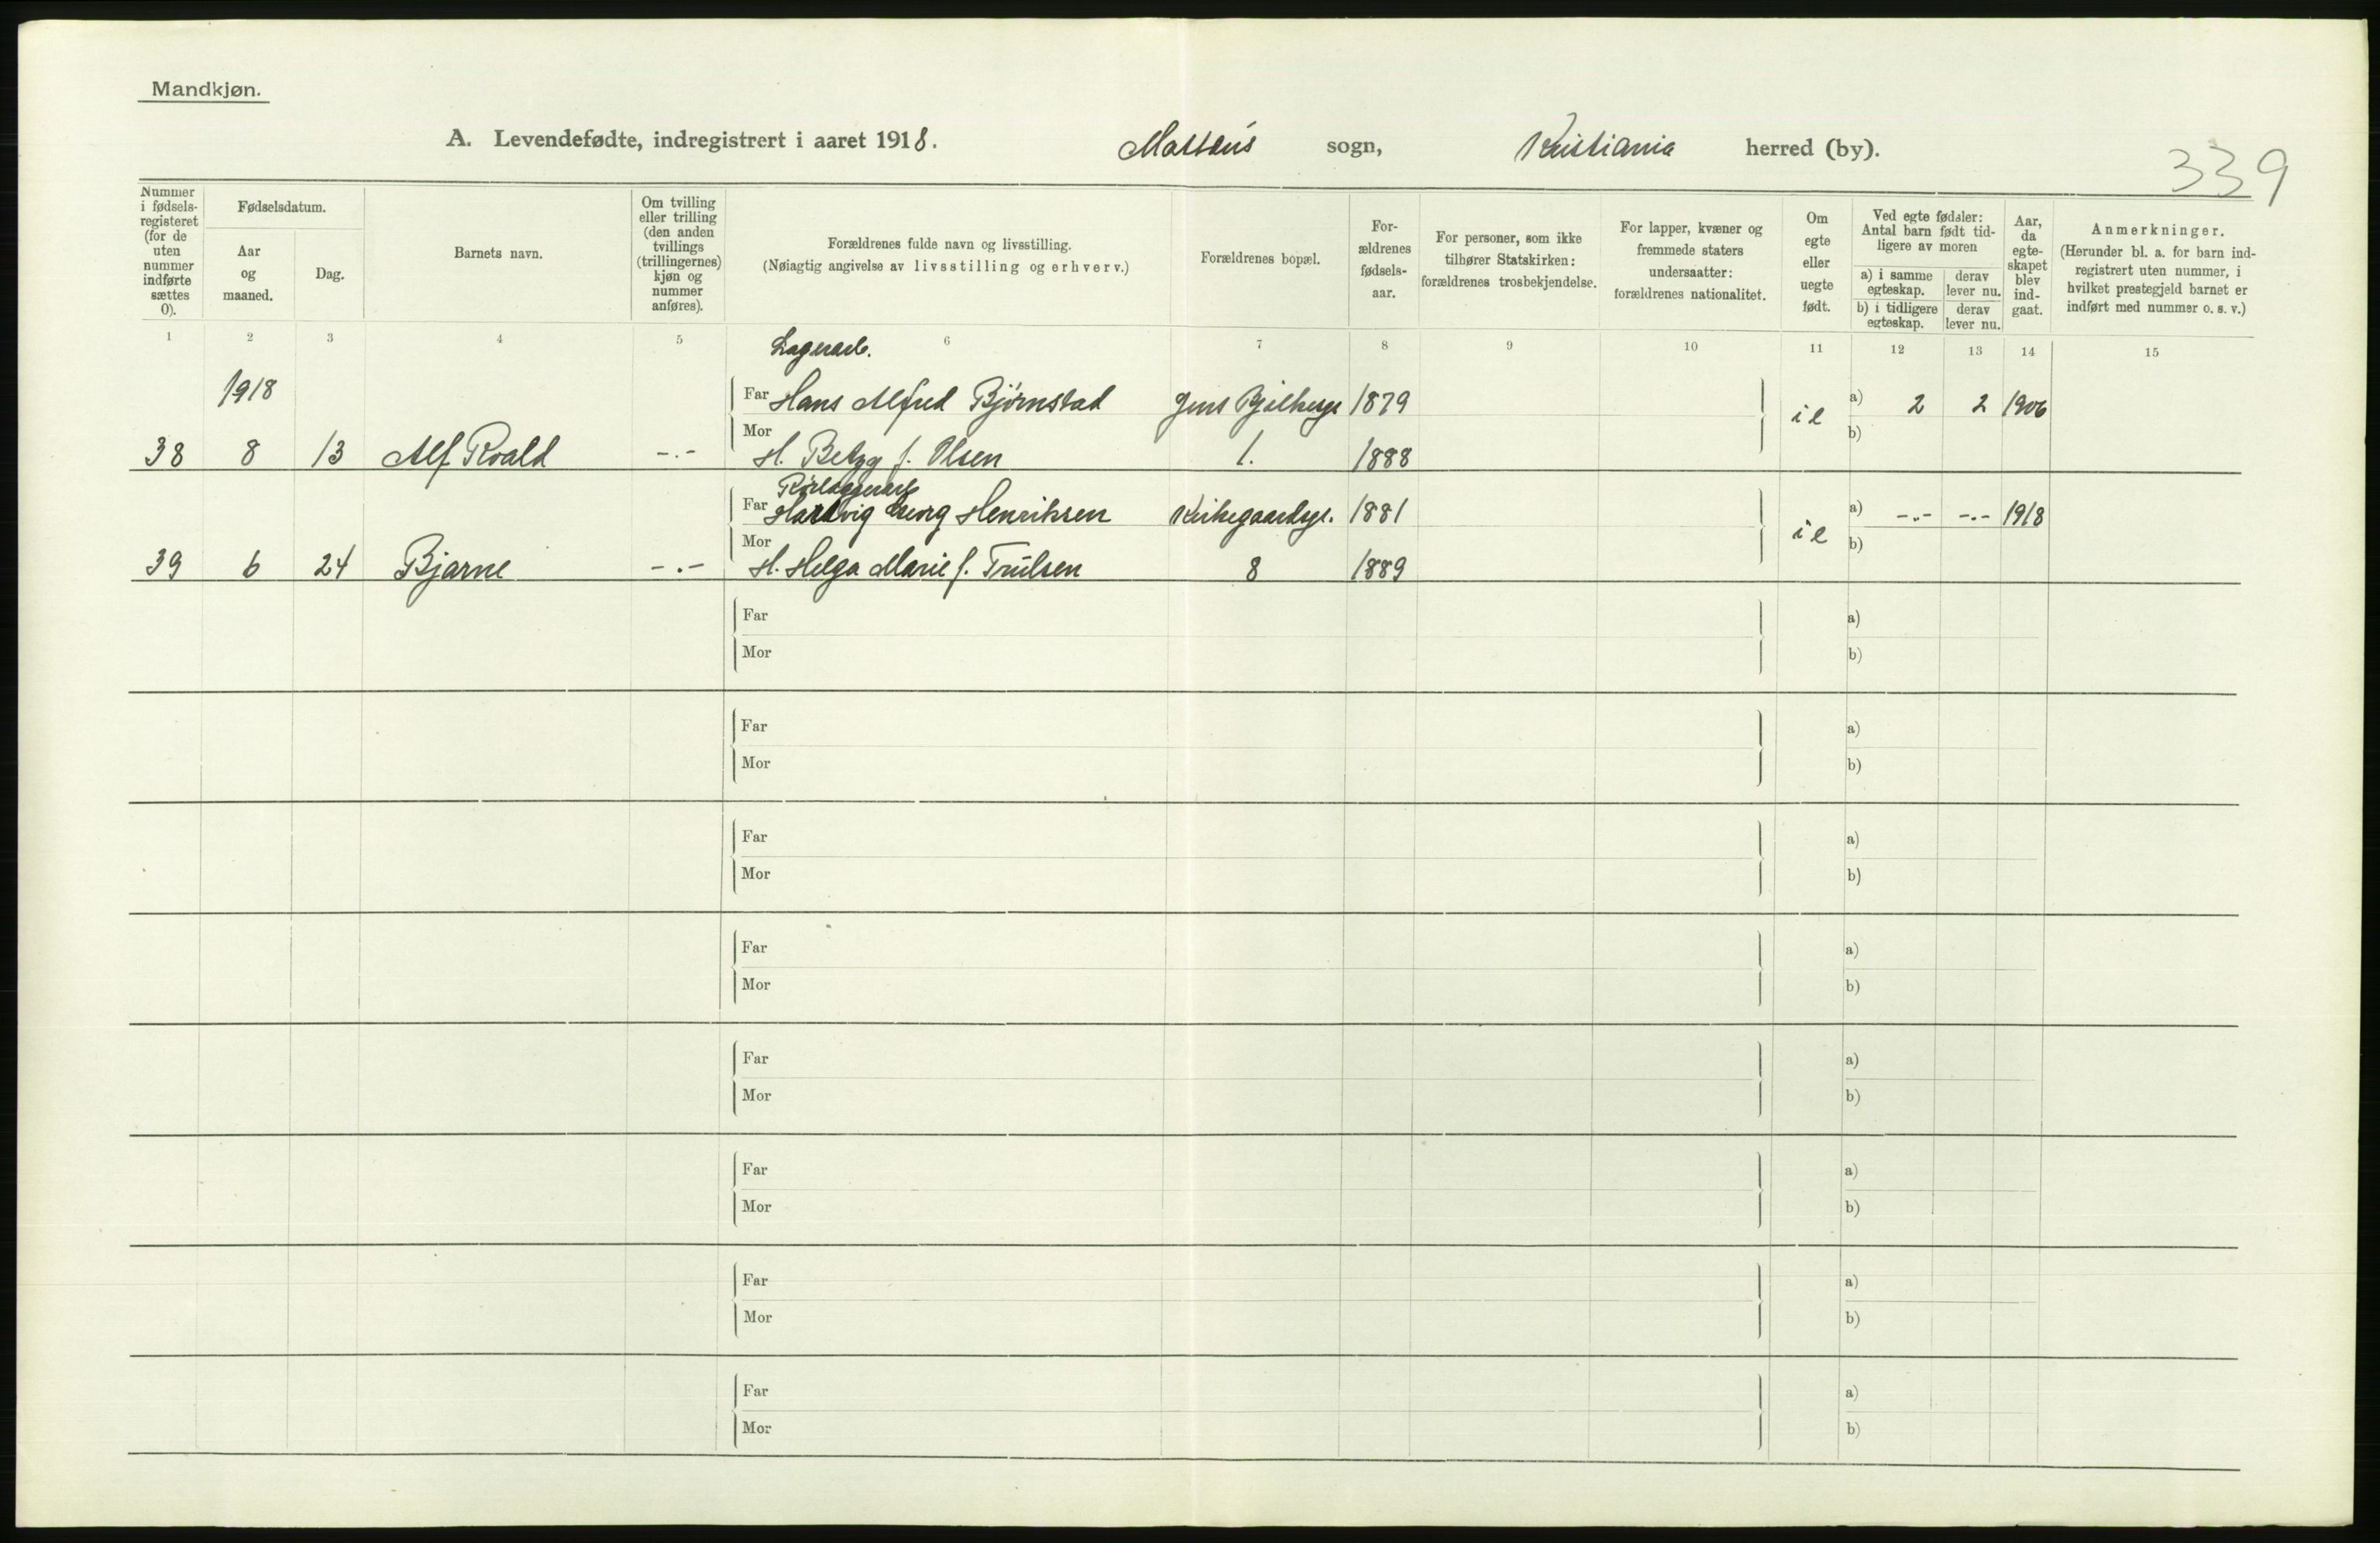 Mandkjøn.
A. Levendefødte, indregistrert i aaret 1918. Mattæus sogn, Kristiania herred (by).
339
Nummer i fødsels-registeret (for de uten nummer indførte sættes 0).
Fødselsdatum.
Aar og maaned.
Dag.
Barnets navn.
Om tvilling eller trilling (den anden tvillings (trillingernes) kjøn og nummer anføres).
Forældrenes fulde navn og livsstilling.
(Nøiagtig angivelse av livsstilling og erhverv.)
Forældrenes bopæl.
For-ældrenes fødsels-aar.
For personer, som ikke tilhører Statskirken: forældrenes trosbekjendelse.
For lapper, kvæner og fremmede staters undersaatter: forældrenes nationalitet.
Om egte eller uegte født.
Ved egte fødsler: Antal barn født tid-ligere av moren
a) i samme egteskap.
derav lever nu.
b) i tidligere egteskap.
derav lever nu.
Aar, da egte-skapet blev ind-gaat.
Anmerkninger.
(Herunder bl. a. for barn ind-registrert uten nummer, i hvilket prestegjeld barnet er indført med nummer o. s. v.)
1 2 3 4 5 6 7 8 9 10 11 12 13 14 15
Lagerarb.
1918 Far Hans Alfred Bjørnstad Jens Bjelkesgt 1879 i e a) 2 2 1906
38 8 13 Alf Roald -.- Mor H. Betzy f. Olsen 1. 1888 b)
Rørlæggerarb
Far Hartvig Georg Henriksen Kirkegaardsgt. 1881 i e a) -.- -.- 1918
39 6 24 Bjarne -.- Mor H. Helga Marie f. Trulsen 8 1889 b)
Far a)
Mor b)
Far a)
Mor b)
Far a)
Mor b)
Far a)
Mor b)
Far a)
Mor b)
Far a)
Mor b)
Far a)
Mor b)
Far a)
Mor b)